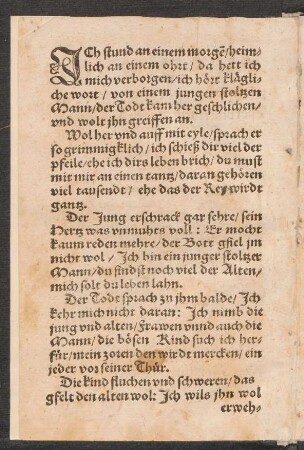 ICh stund an einem morgẽ/heim-
lich an einem ohrt/ da hett ich
mich verborgen/ich hört klägli-
che wort / von einem jungen stoltzen
Mann/der Todt kam her geschlichen/
vnd wolt jhn greiffen an.
Wol her vnd auff mit eyle/sprach er
so grimmigklich/ ich schieß dir viel der
pfeile/ehe ich dirs leben brich/ du must
mit mir an einen tantz/daran gehören
viel tausendt / ehe das der Rey wirdt
gantz.
Der Jung erschrack gar sehre/ sein
Hertz was vnmuhts voll : Er mocht
kaum reden mehre/ der Bott gfiel jm
nicht wol / Jch bin ein junger stoltzer
Mann/du findst noch viel der Alten/
mich solt du leben lahn.
Der Todt sprach zu jhm balde/ Jch
kehr mich nicht daran: Jch nimb die
jung vnd alten/ frawen vnnd auch die
Mann/ die bösen Kind such ich her-
für/ mein zoren den wirdt mercken/ ein
jeder vor seiner Thür.
Die kind fluchen vnd schweren/ das
gfelt den alten wol: Jch wils jhn wol
erweh-